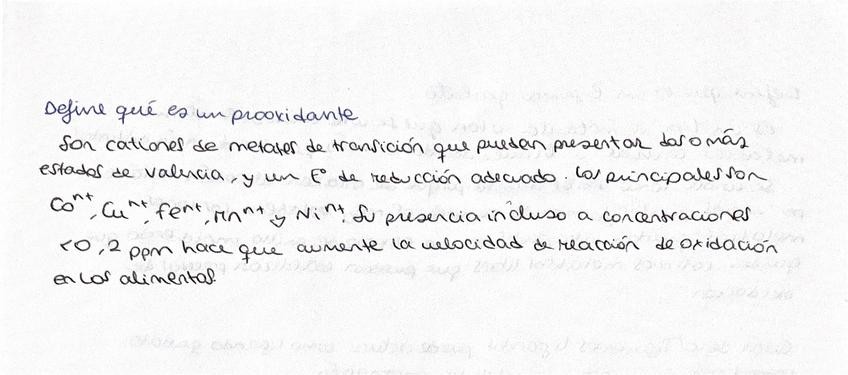 Define qué es un prooxidante
Son cationes de metales de transición que pueden presentar dos o más
estados de valencia, y un E° de reducción adecuado. Los principales son
Coⁿ⁺, Cuⁿ⁺, Feⁿ⁺, Mnⁿ⁺ y Niⁿ⁺. Su presencia incluso a concentraciones
<0,2 ppm hace que aumente la velocidad de reacción de oxidación
en los alimentos.